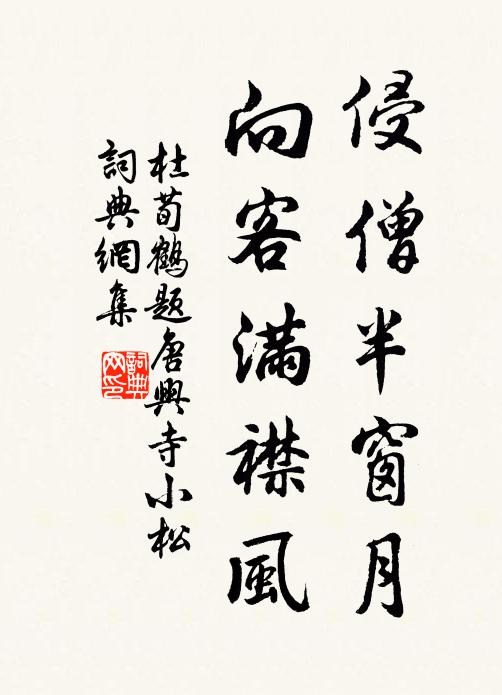 侵僧半窗月
向客满襟風
杜荀鶴题唐興寺小松
詞典網集
詞典
网印